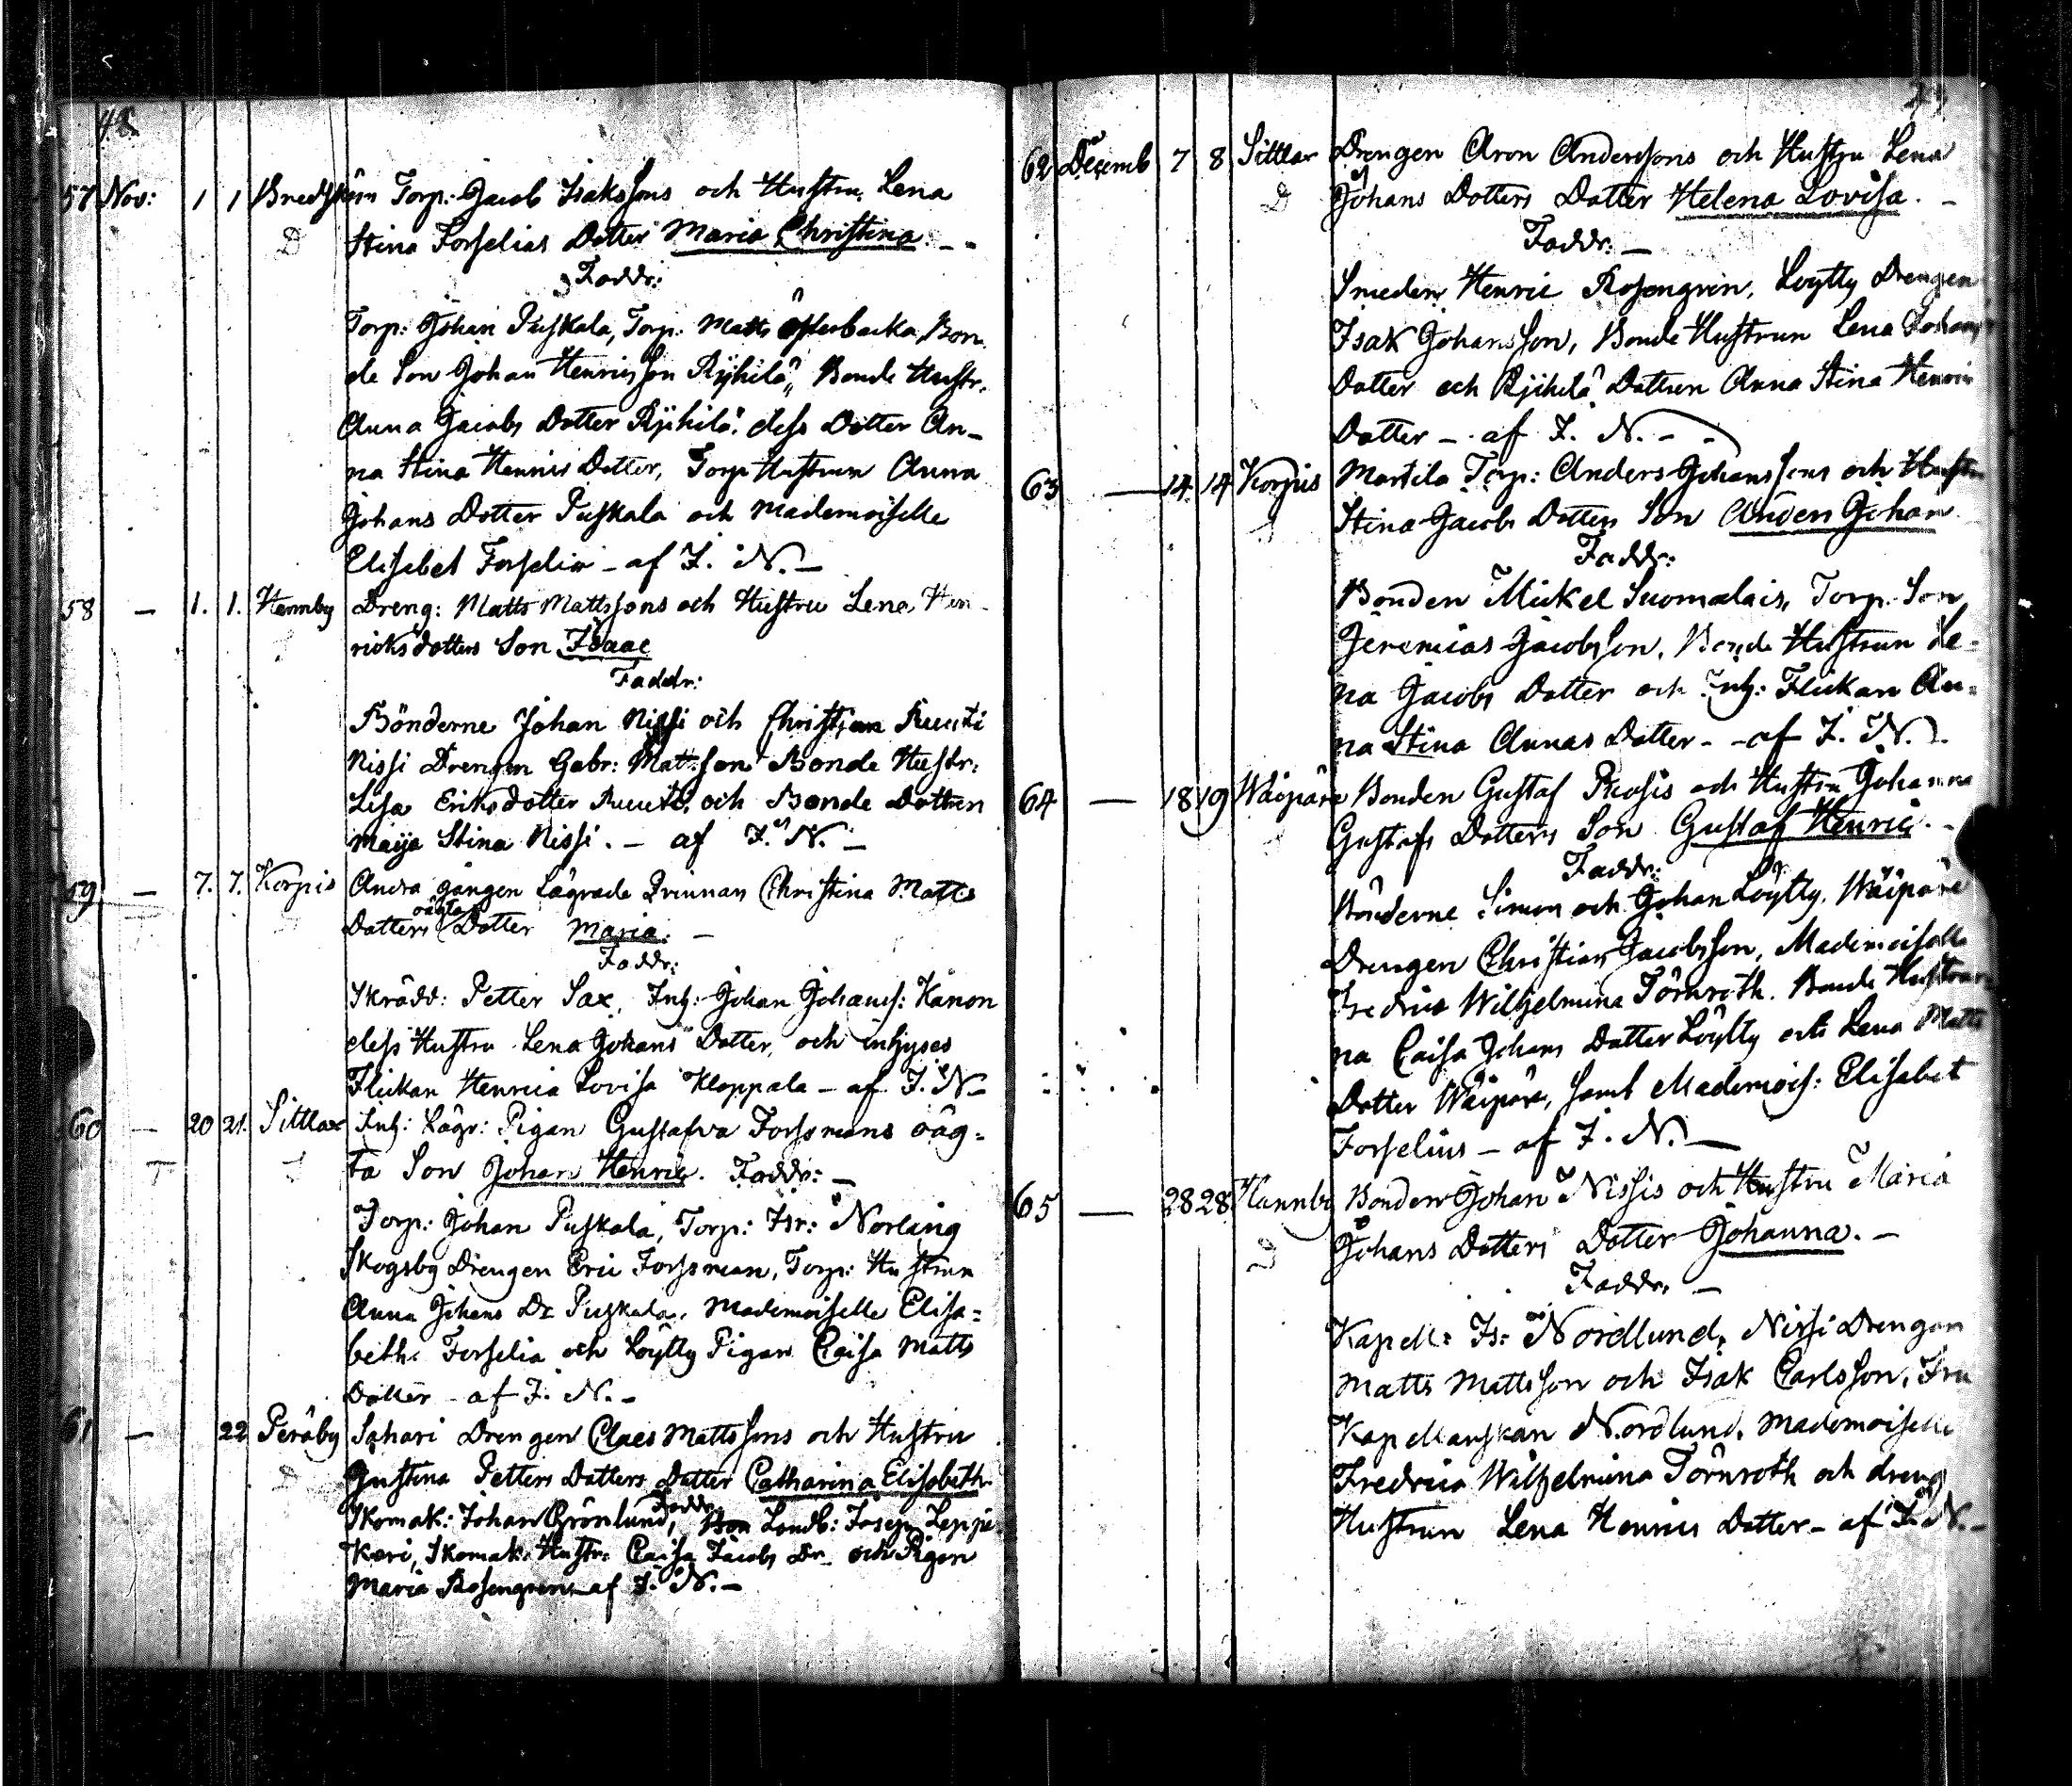 48
57 Nov: 1 1 Bredskän Torp: Jacob Isakssons och Hustru Lena
D Stina Forselias Dotter Maria Christina. - -
Faddr:
Torp: Johan Puskala, Torp: Matts Öfterbacka, Bon-
de Son Johan Henricsson Ryhilä, Bonde Hustr.
Anna Jacobs Dotter Ryhilä. dess Dotter An-
na Stina Henrics Dotter, Torp Hustrun Anna
Johans Dotter Puskala och Mademoiselle
Elisabet Forselia - af I. N. -
58 - 1. 1. Hannby Dreng: Matts Mattssons och Hustru Lena Hen-
ricksdotters Son Isaac
Faddr:
Bönderne Johan Nissi och Christian Ruuti
Nissi Drengen Gabr: Mattsson Bonde Hustr:
Lisa Eriksdotter Ruuti, och Bonde Dottren
Maija Stina Nissi. - af I. N. -
59 - 7. 7. Korpis Andra gången Lägrade Qvinnan Christina Matts
Dotters oägta Dotter Maria. -
Faddr:
Skrädd: Petter Sax, Inh: Johan Johanss: Kanon
dess Hustru Lena Johans Dotter, och inhyses
Flickan Henrica Lovisa Kloppala - af I. N -
60 - 20 21. Sittlax Inh: Lägr: Pigan Gustafva Forssmans oäg=
ta Son Johan Henric. Faddr: -
Torp: Johan Puskala, Torp: Isr: Norling
Skogsby Drengen Eric Forssman, Torp: Hustrun
Anna Johans Dr Puskala, Mademoiselle Elisa=
beth Forselia och Löytty Pigan Caisa Matts
Dotter - af I. N. -
61 - 22 Peräby Sahari Drengen Claes Mattssons och Hustru
D Gustena Petters Dotters Dotter Catharina Elisabeth
Faddr:
Skomak: Johan Grönlund, Landb: Josep Leppe
Keri, Skomak: Hustr: Caisa Jacobs Dr och Pigan
Maria Rosengren - af I. N. -
62 Decemb 7 8 Sittlax Drengen Aron Anderssons och Hustru Lena
D Johans Dotters Dotter Helena Lovisa. -
Faddr: -
Smeden Henric Rosengren, Löytty Drengen
Isak Johansson, Bonde Hustrun Lena Johans
Dotter och Ryhilä Dottren Anna Stina Henrics
Dotter - af I. N. - -
63 - 14. 14 Korpis Martila Torp: Anders Johanssons och Hustru
Stina Jacobs Dotters Son Anders Johan
Faddr:
Bonden Mickel Suomalais, Torp. Son
Jeremias Jacobsson, Bonde Hustrun Le=
na Jacobs Dotter och Inh: Flickan An=
na Stina Annas Dotter - - af I. N.
64 - 18 19 Wäipäre Bonden Gustaf Prosis och Hustru Johanna
Gustafs Dotters Son Gustaf Henric. -
Faddr:
Bönderne Simon och Johan Löytty, Wäipäre
Drengen Christian Jacobsson, Mademoiselle
Fredrica Wilhelmina Törnroth. Bonde Hustrur
na Caisa Johans Dotter Löytty och Lena Matts
Dotter Wäipäre, samt Mademois: Elisabet
Forselius - af I. N. -
65 - 28 28 Hannby Bonden Johan Nissis och Hustru Maria
D Johans Dotters Dotter Johanna. -
Faddr. -
Kapell: Is: Nordlund, Nissi Drengen
Matts Mattsson och Isak Carlsson, Fru
Kapellanskan Nordlund. Mademoiselle
Fredrica Wilhelmina Törnroth och dreng
Hustrun Lena Henrics Dotter - af I. N. -